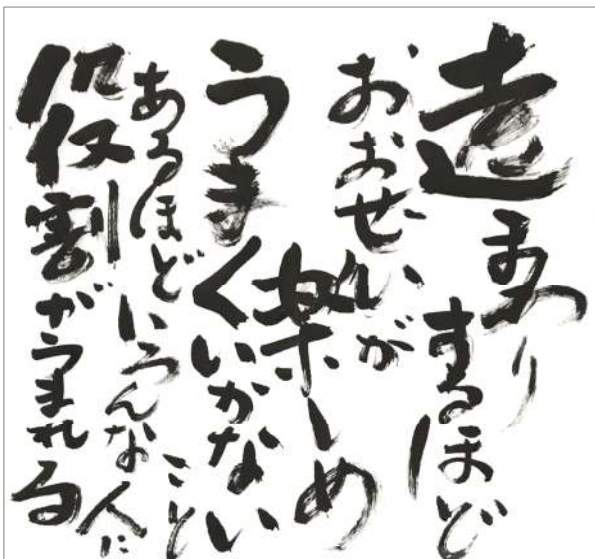 遠まわり
するほど
おおぜいが
楽しめ
うまくいかない
こと
あるほどいろんな人に
役割がうまれる